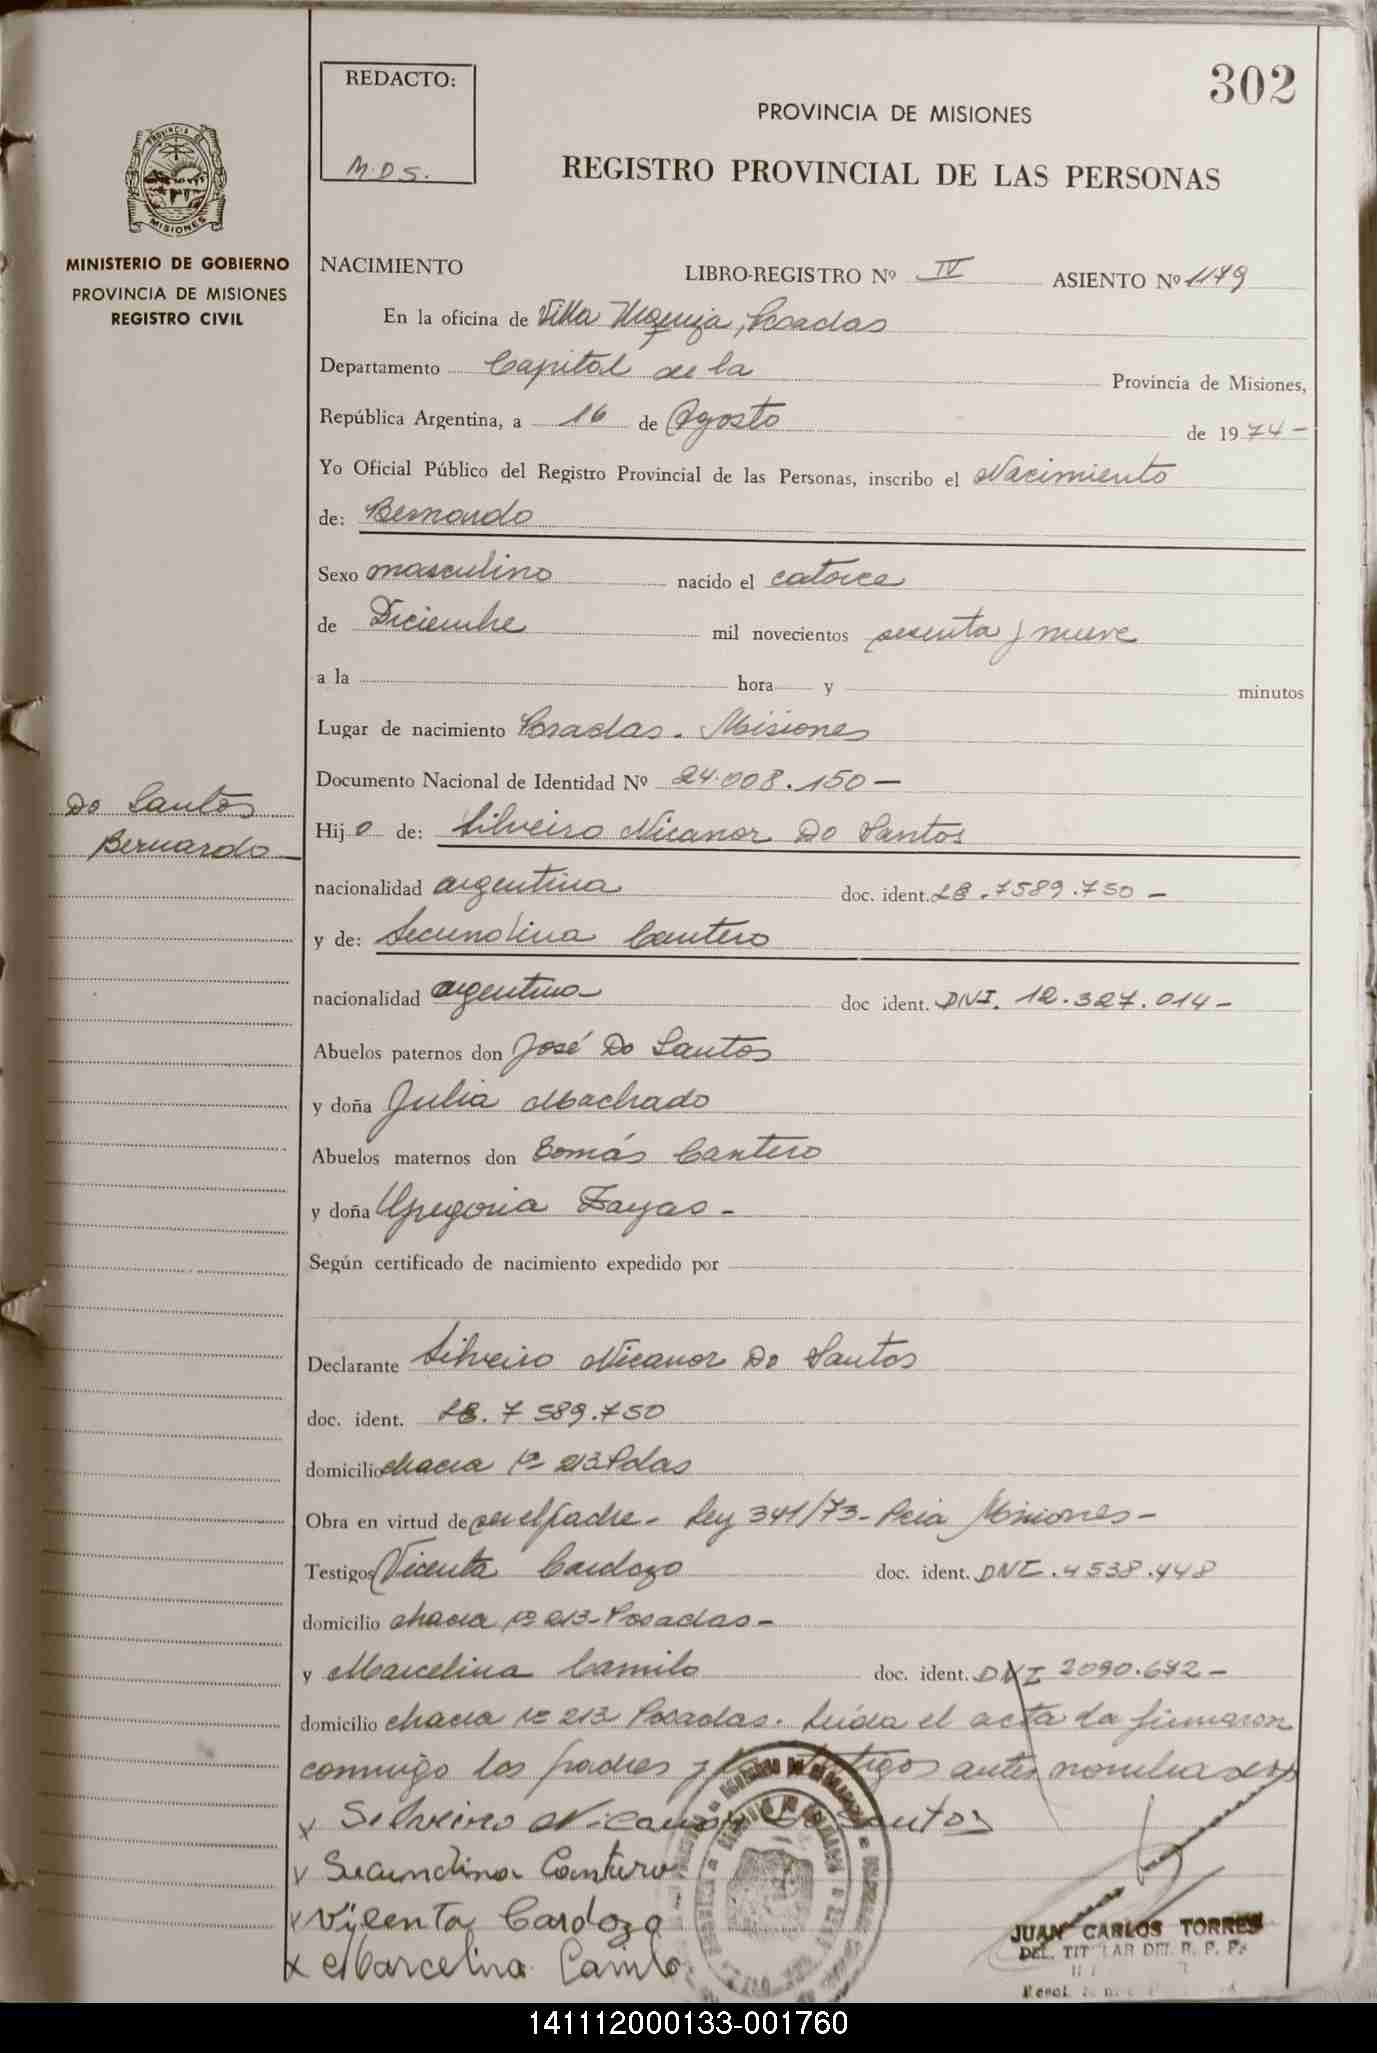 302
REDACTO:
M.D.S.
PROVINCIA DE MISIONES
REGISTRO PROVINCIAL DE LAS PERSONAS
PROVINCIA DE
MISIONES
MINISTERIO DE GOBIERNO
PROVINCIA DE MISIONES
REGISTRO CIVIL
NACIMIENTO LIBRO-REGISTRO Nº IV ASIENTO Nº 1179
En la oficina de Villa Urquiza, Posadas
Departamento Capital de la Provincia de Misiones,
República Argentina, a 16 de Agosto de 1974-
Yo Oficial Público del Registro Provincial de las Personas, inscribo el Nacimiento
de: Bernardo
Sexo masculino nacido el catorce
de Diciembre mil novecientos sesenta y nueve
a la hora y minutos
Lugar de nacimiento Posadas. Misiones
Documento Nacional de Identidad Nº 24.008.150-
Do Santos
Bernardo-
Hijo de: Silveiro Nicanor Do Santos
nacionalidad argentina doc. ident. LE.7589.750-
y de: Secundina Cantero
nacionalidad argentina- doc ident. DNI. 12.327.014-
Abuelos paternos don José Do Santos
y doña Julia Machado
Abuelos maternos don Tomás Cantero
y doña Gregoria Zayas-
Según certificado de nacimiento expedido por
Declarante Silveiro Nicanor Do Santos
doc. ident. LE. 7 589.750
domicilio chacra Nº 213 Pdas
Obra en virtud de ser el padre- Ley 341/73- Pcia Misiones-
Testigos Vicenta Cardozo doc. ident. DNI. 4538.448
domicilio chacra Nº 213- Posadas-
y Marcelina Camilo doc. ident. DNI 2090.672-
domicilio chacra Nº 213 Posadas. Leída el acta la firmaron
conmigo los padres y los testigos antes nombrados
x Silveiro Nicanor Do Santos
x Secundina Cantero
x Vicenta Cardozo
x Marcelina Camilo
JUAN CARLOS TORRES
DEL. TITULAR DEL R. P. P.
141112000133-001760